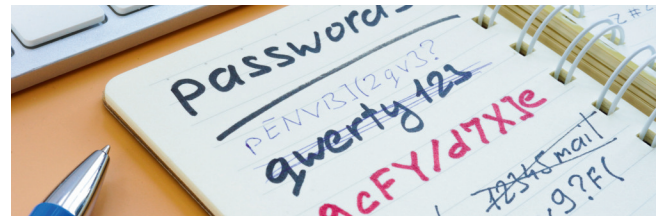 Passwords
pENVB3I(2gv3?
qwerty123
gcFY/d7X]e
12345mail
g?F(
2#2